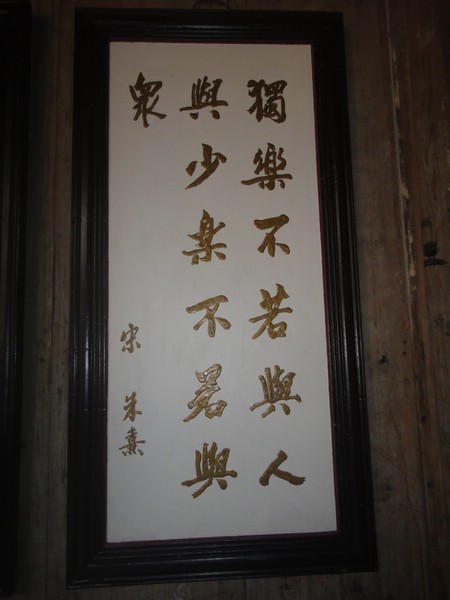 獨樂不若與人
與少樂不若與
衆
宋 朱熹